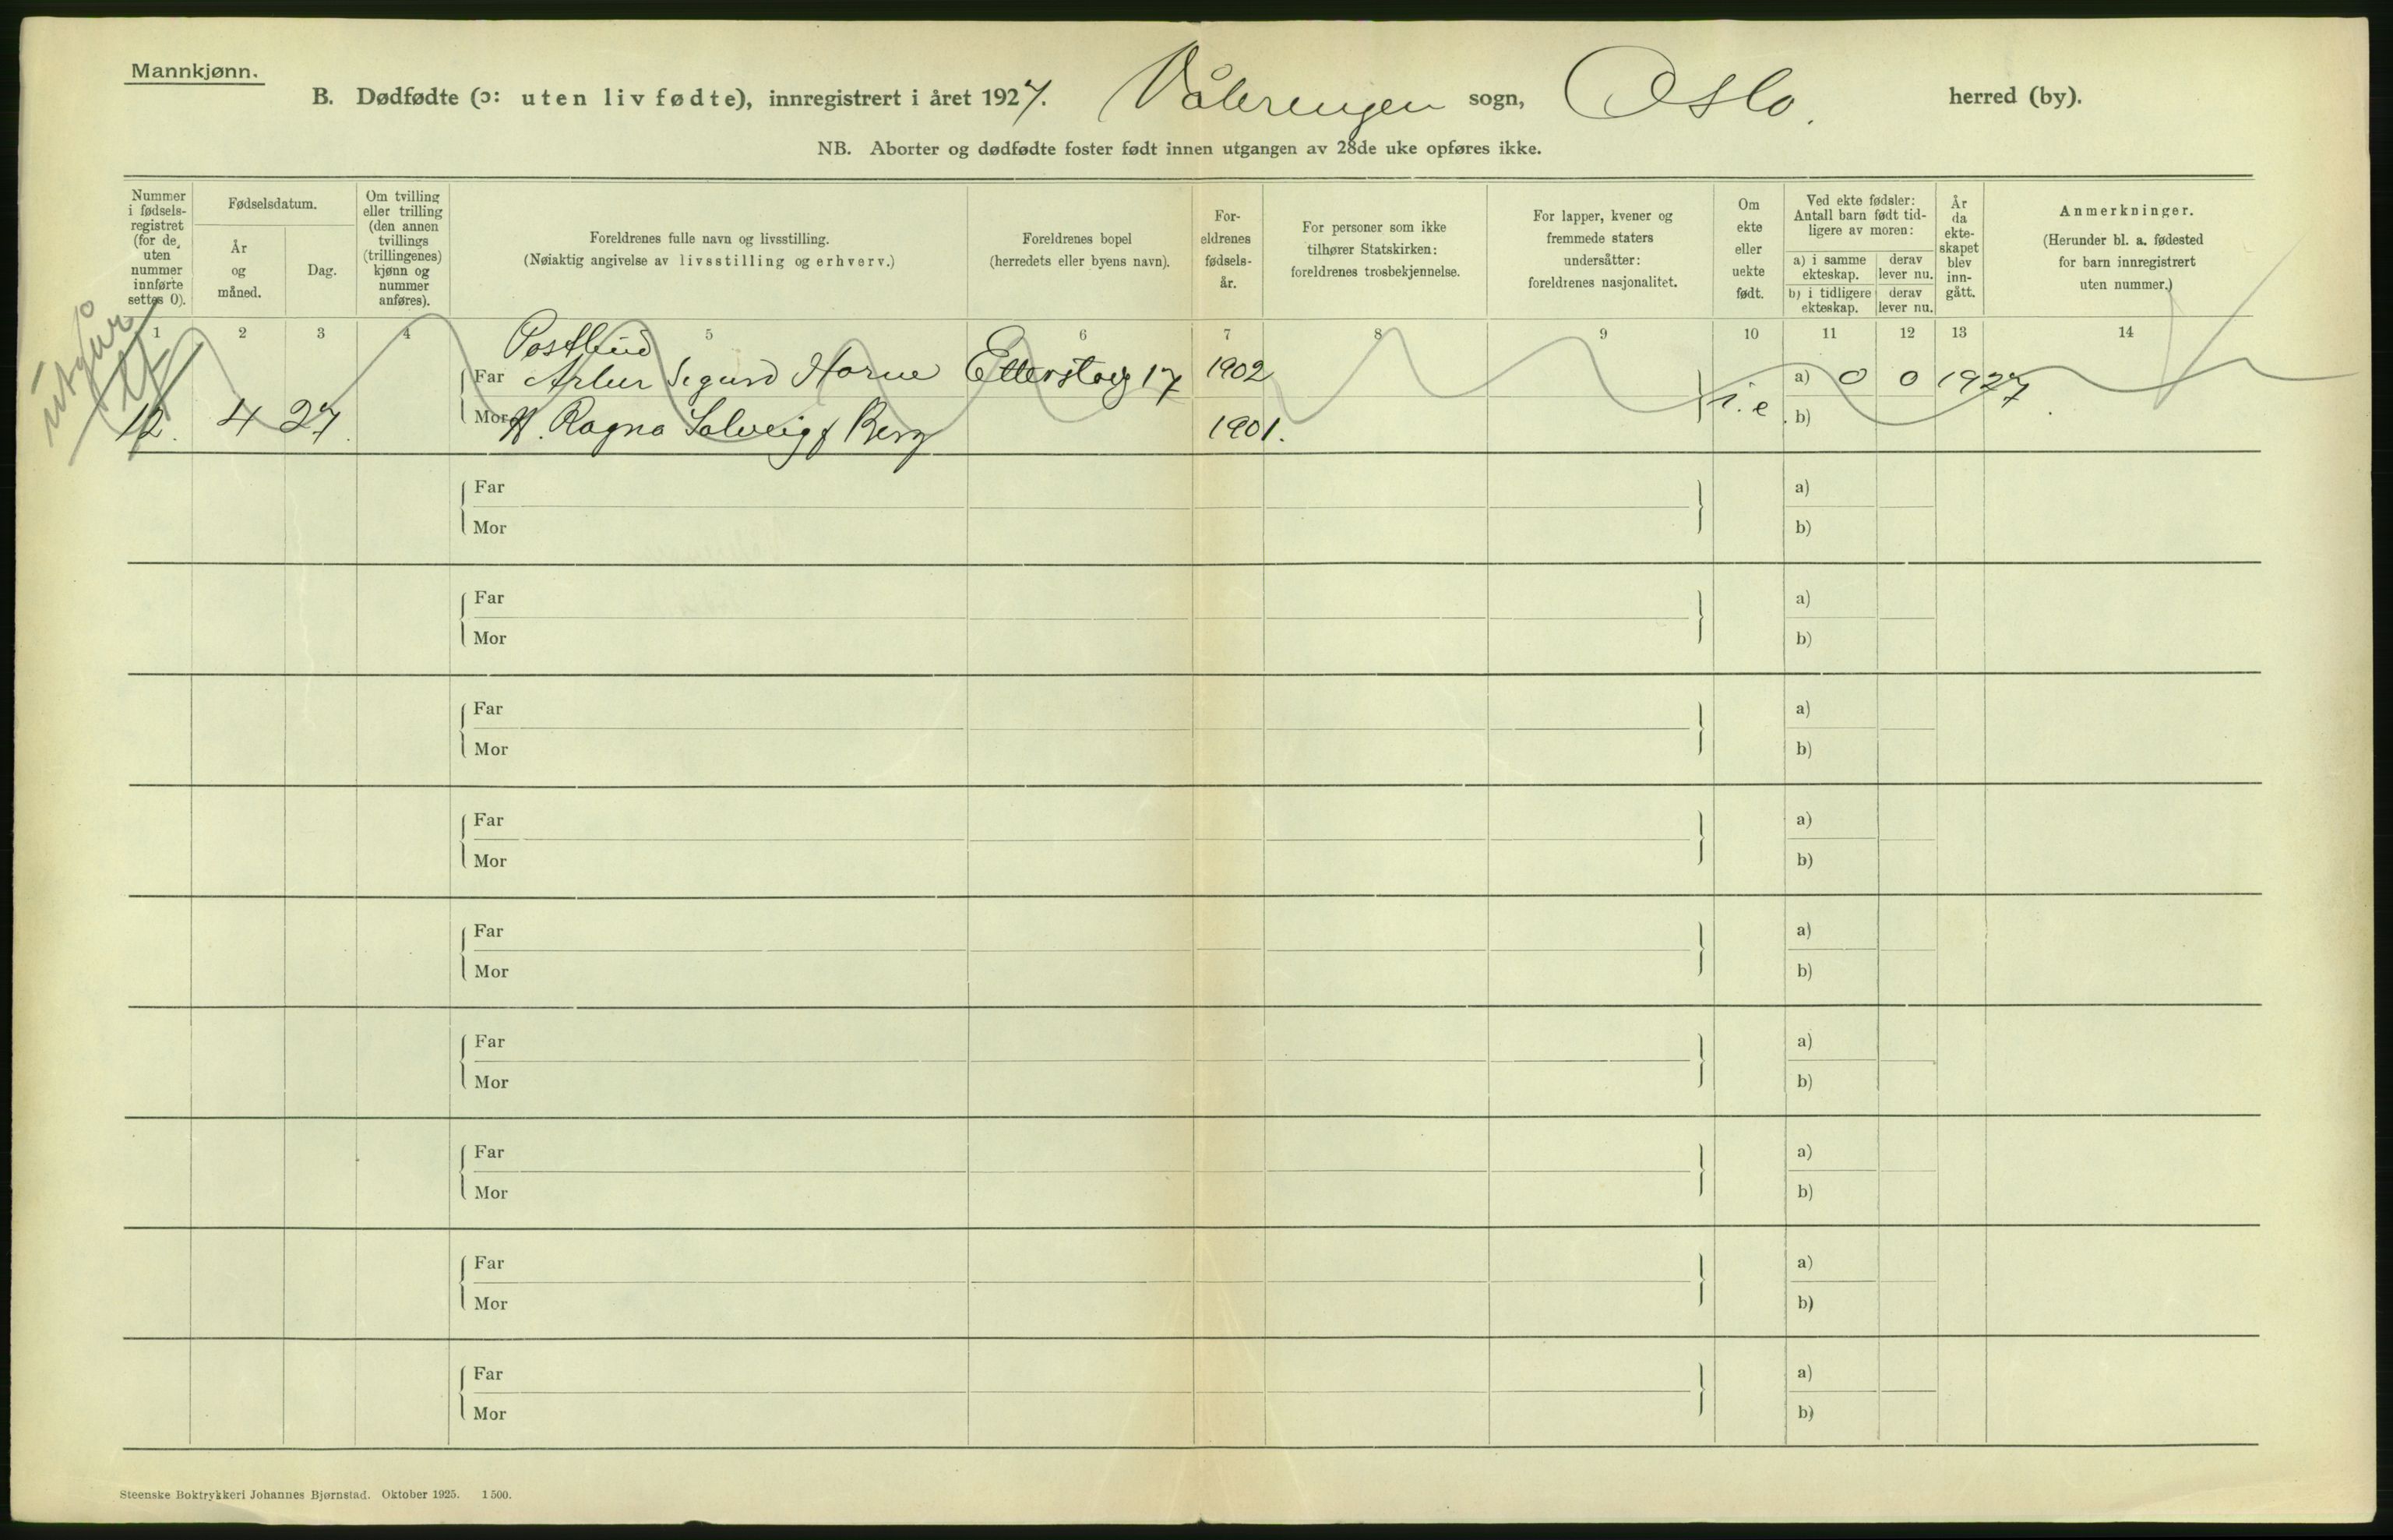 Mannkjønn.
B. Dødfødte (ɔ: uten liv fødte), innregistrert i året 1927. Vålerengen sogn, Oslo. herred (by).
NB. Aborter og dødfødte foster født innen utgangen av 28de uke opføres ikke.
Nummer i fødsels-registret (for de uten nummer innførte settes 0).
Fødselsdatum.
År og måned.
Dag.
Om tvilling eller trilling (den annen tvillings (trillingenes) kjønn og nummer anføres).
Foreldrenes fulle navn og livsstilling.
(Nøiaktig angivelse av livsstilling og erhverv.)
Foreldrenes bopel
(herredets eller byens navn).
For-eldrenes fødsels-år.
For personer som ikke tilhører Statskirken: foreldrenes trosbekjennelse.
For lapper, kvener og fremmede staters undersåtter: foreldrenes nasjonalitet.
Om ekte eller uekte født.
Ved ekte fødsler: Antall barn født tid-ligere av moren:
a) i samme ekteskap.
derav lever nu.
b) i tidligere ekteskap.
derav lever nu.
År da ekte-skapet blev inn-gått.
Anmerkninger.
(Herunder bl. a. fødested for barn innregistrert uten nummer.)
1 2 3 4 5 6 7 8 9 10 11 12 13 14
utgår
Postbud
Far Artur Sigurd Horne Etterstadg 17 1902 a) 0 0 1927
12. 4 27. Mor H. Ragna Solveig f Berg 1901. i. e. b)
Far a)
Mor b)
Far a)
Mor b)
Far a)
Mor b)
Far a)
Mor b)
Far a)
Mor b)
Far a)
Mor b)
Far a)
Mor b)
Far a)
Mor b)
Far a)
Mor b)
Steenske Boktrykkeri Johannes Bjørnstad. Oktober 1925. 1500.